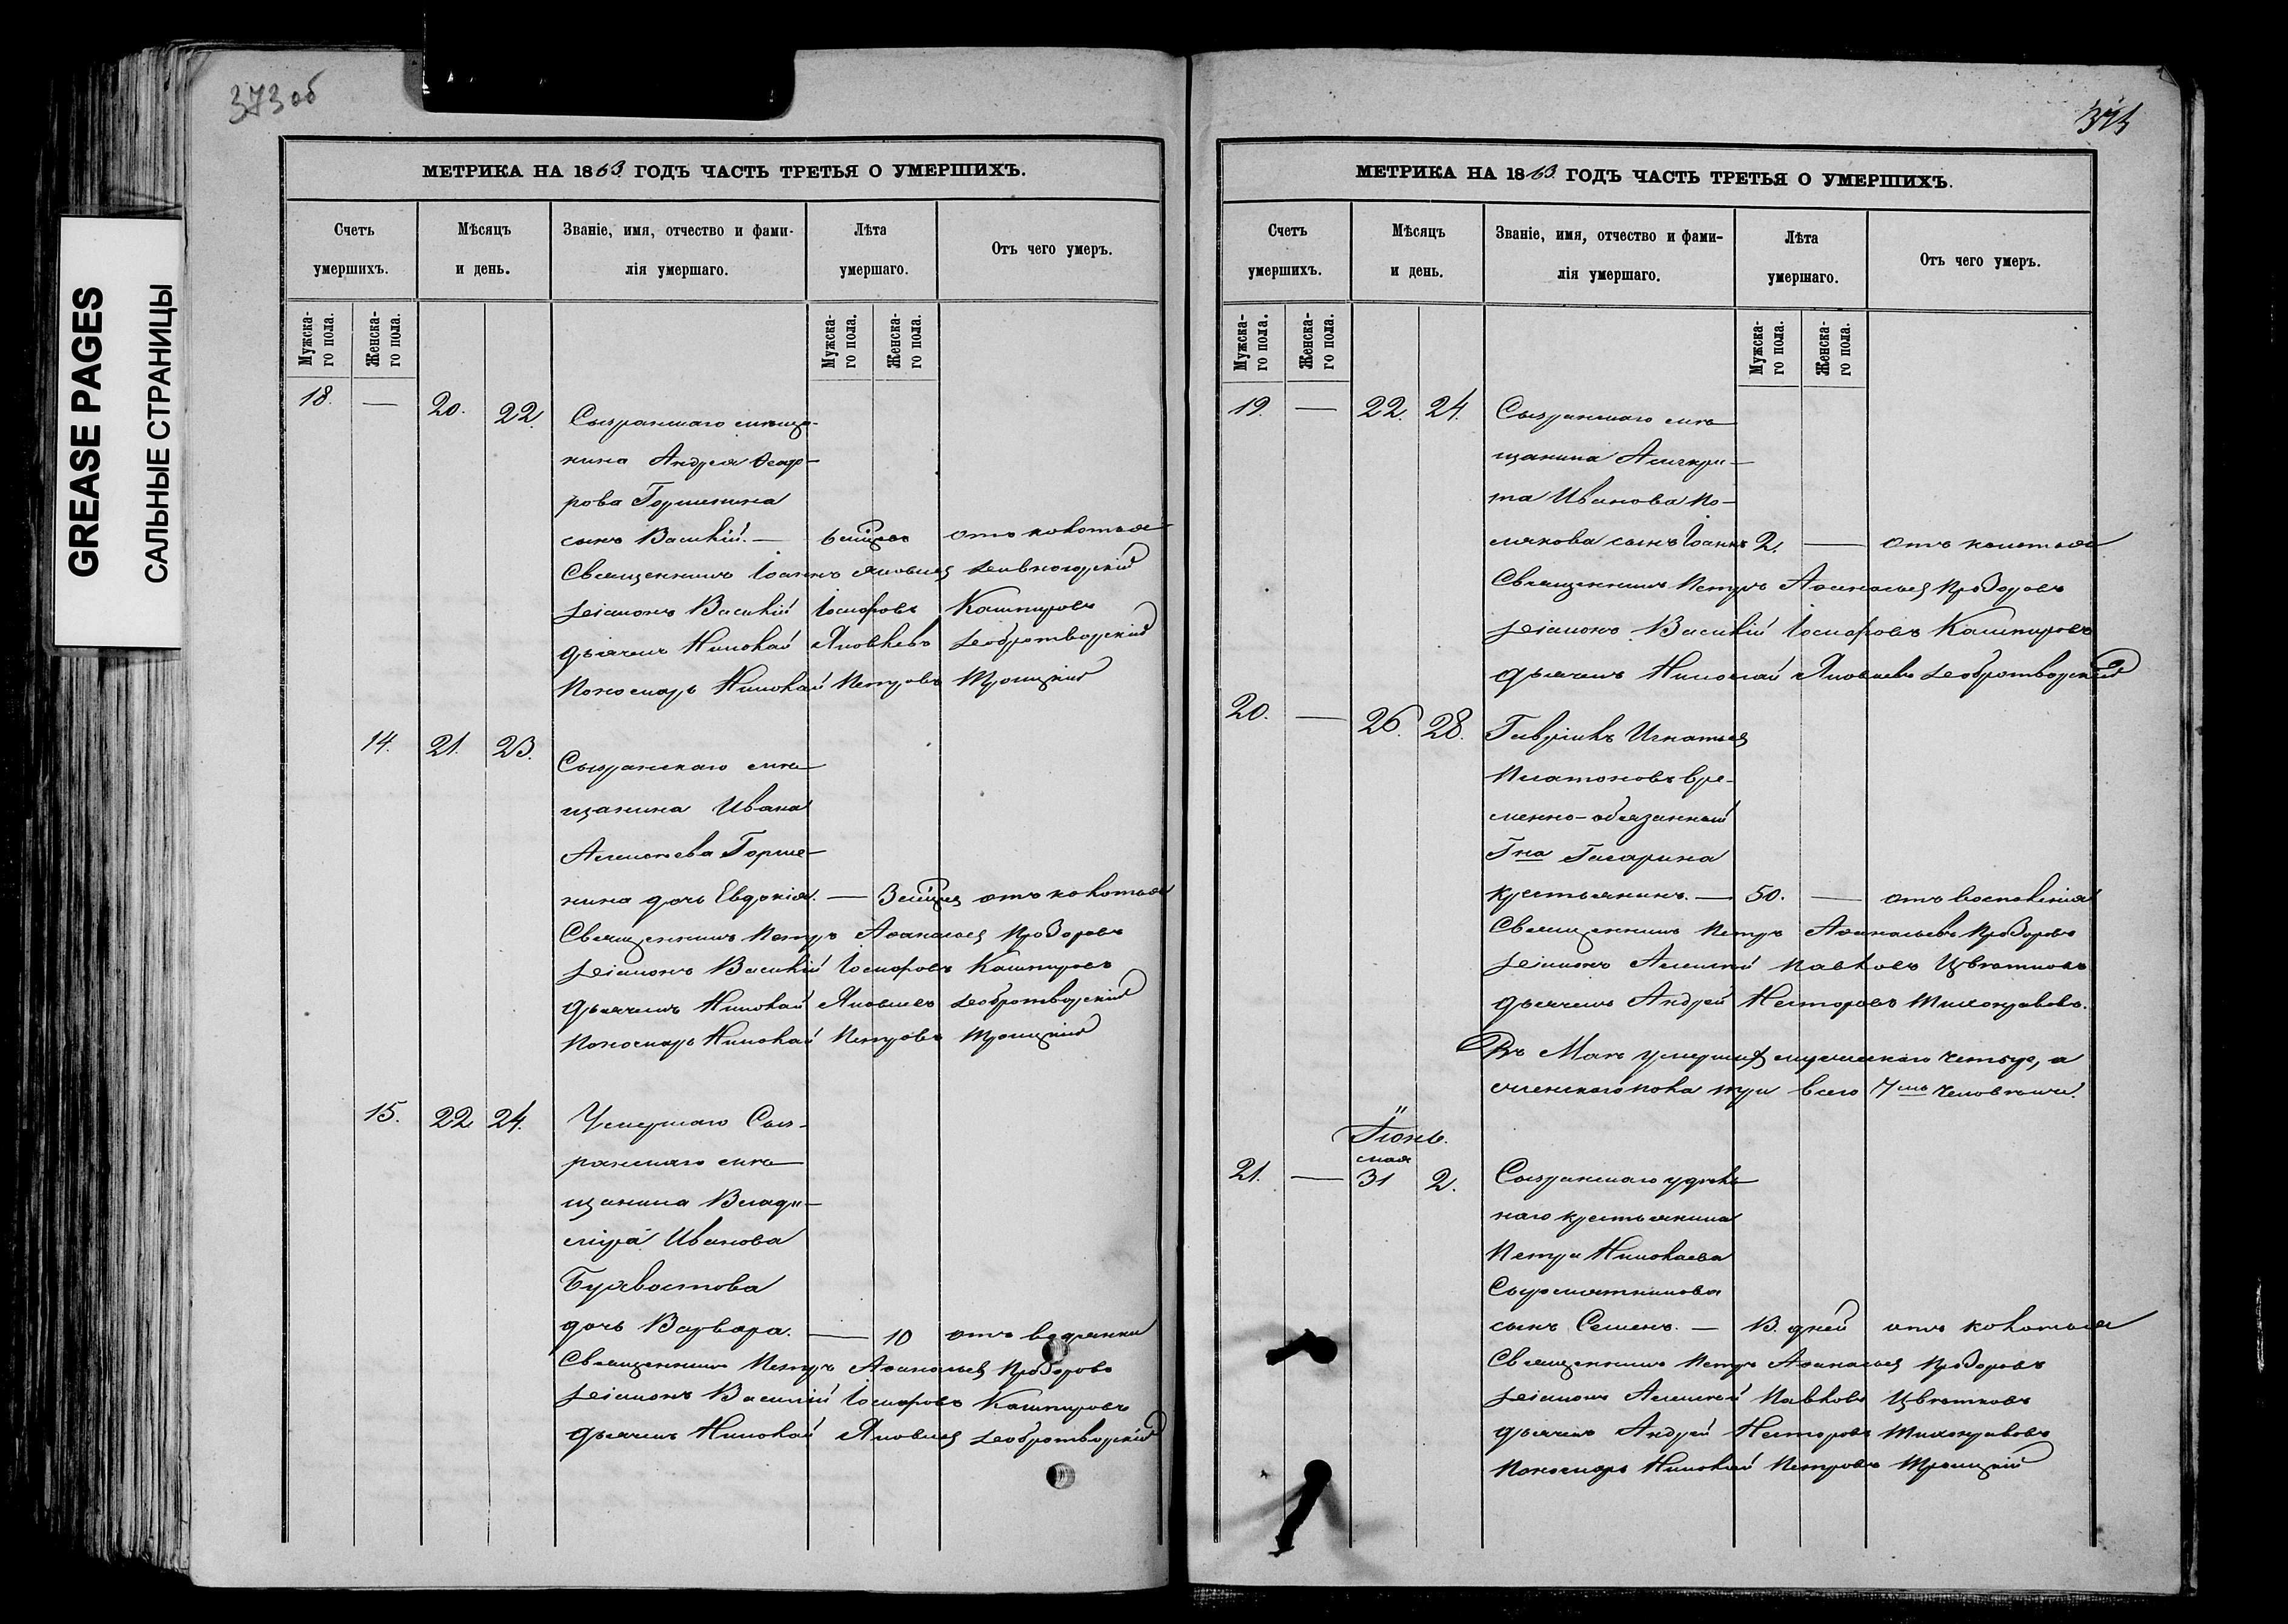 373 об
GREASE PAGES
САЛЬНЫЕ СТРАНИЦЫ
МЕТРИКА НА 1863 ГОДЪ ЧАСТЬ ТРЕТЬЯ О УМЕРШИХЪ.
Счетъ умершихъ.
Мѣсяцъ и день.
Званіе, имя, отчество и фами-
лія умершаго.
Лѣта умершаго.
Отъ чего умеръ.
Мужска-
го пола.
Женска-
го пола.
Мужска-
го пола.
Женска-
го пола.
18. — 20. 22. Сызранскаго мѣща-
нина Андрея
рова Горшенина
сынъ Василій. — отъ колотья
Священникъ Іоаннъ Яковлевъ
Діаконъ Василій Іосифовъ Кашпуровъ
Дьячекъ Николай Яковлевъ Добротворскій
Пономарь Николай Петровъ Троицкій
14. 21. 23.
Сызранскаго мѣ-
щанина Ивана
Горше-
нина дочь Евдокія. — отъ колотья
Священникъ Петръ Афанасьевъ Прозоровъ
Діаконъ Василій Іосифовъ Кашпуровъ
Дьячекъ Николай Яковлевъ Добротворскій
Пономарь Николай Петровъ Троицкій
15. 22 24. Умершаго Сыз-
ранскаго мѣ-
щанина Влади-
міра Иванова
Бухвостова
дочь Варвара. — 10 отъ водянки
Священникъ Петръ Афанасьевъ Прозоровъ
Діаконъ Василій Іосифовъ Кашпуровъ
Дьячекъ Николай Яковлевъ Добротворскій
374
МЕТРИКА НА 1863 ГОДЪ ЧАСТЬ ТРЕТЬЯ О УМЕРШИХЪ.
Счетъ умершихъ.
Мѣсяцъ и день.
Званіе, имя, отчество и фами-
лія умершаго.
Лѣта умершаго.
Отъ чего умеръ.
Мужска-
го пола.
Женска-
го пола.
Мужска-
го пола.
Женска-
го пола.
19. — 22. 24. Сызранскаго мѣ-
щанина
та Иванова По-
лякова сынъ Іоаннъ 2. — отъ колотья
Священникъ Петръ Афанасьевъ Прозоровъ
Діаконъ Василій Іосифовъ Кашпуровъ
Дьячекъ Николай Яковлевъ Добротворскій
20. — 26. 28. Гавріилъ Игнатьевъ
Платоновъ вре-
менно-обязанный
Гна Гагарина
крестьянинъ. — 50. — отъ воспаленія
Священникъ Петръ Афанасьевъ Прозоровъ
Діаконъ Алексѣй Павловъ Цвѣтковъ
Дьячекъ Андрей Несторовъ Тихонравовъ.
Въ Маѣ умершихъ мужескаго четыре, а
женскаго пола три всего 7мь человѣкъ.
Іюнь.
мая
21. — 31 2. Сызранскаго удѣль-
наго крестьянина
Петра Николаева
Сыромятникова
сынъ Семенъ. — 8. дней отъ колотья
Священникъ Петръ Афанасьевъ Прозоровъ
Діаконъ Алексѣй Павловъ Цвѣтковъ
Дьячекъ Андрей Несторовъ Тихонравовъ
Пономарь Николай Петровъ Троицкій